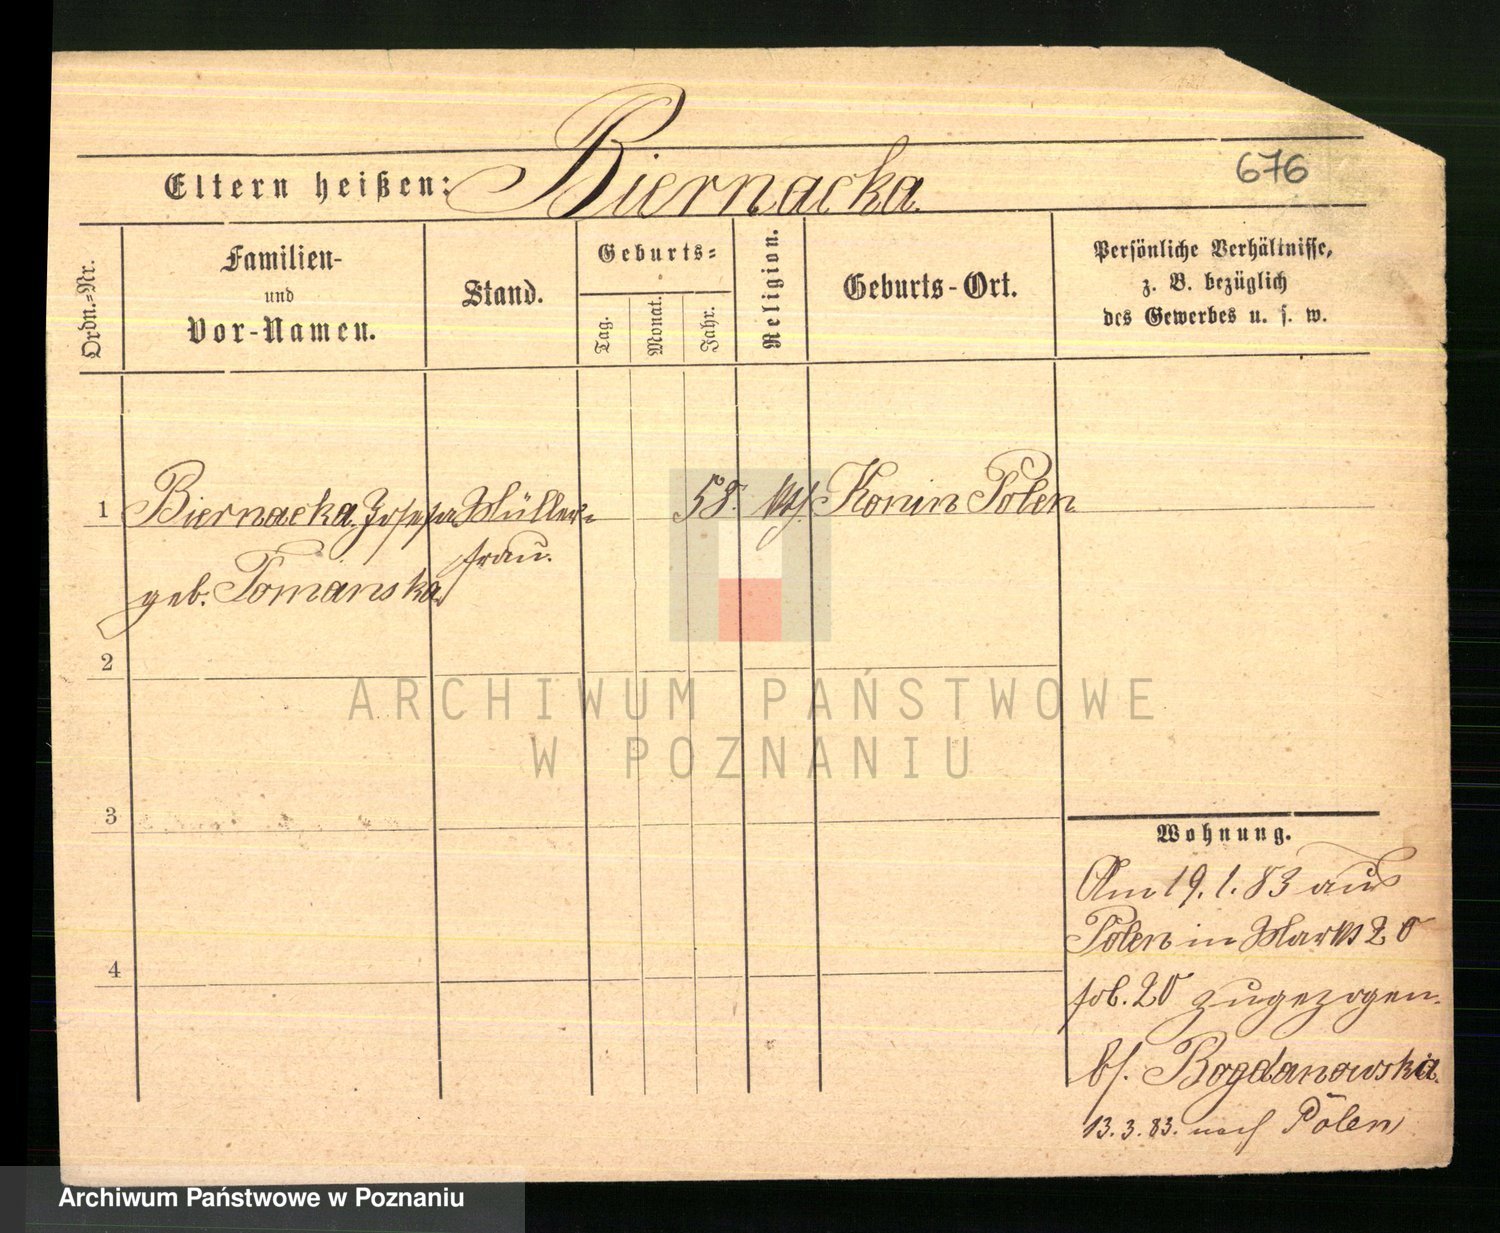 676
Eltern heißen: Biernacka.
Ordn.-Nr.
Familien-
und
Vor-Namen.
Stand.
Geburts-
Tag.
Monat.
Jahr.
Religion.
Geburts-Ort.
Persönliche Verhältnisse,
z. B. bezüglich
des Gewerbes u. s. w.
1 Biernacka Josefa Müller- 58. kth. Konin Polen
frau.
geb. Tomanska
2
3
4
Wohnung.
Am 19.1.83 aus
Polen in 20
20 zugezogen.
bs. Bogdanowska.
13.3.83. nach Polen
ARCHIWUM PAŃSTWOWE
W POZNANIU
Archiwum Państwowe w Poznaniu